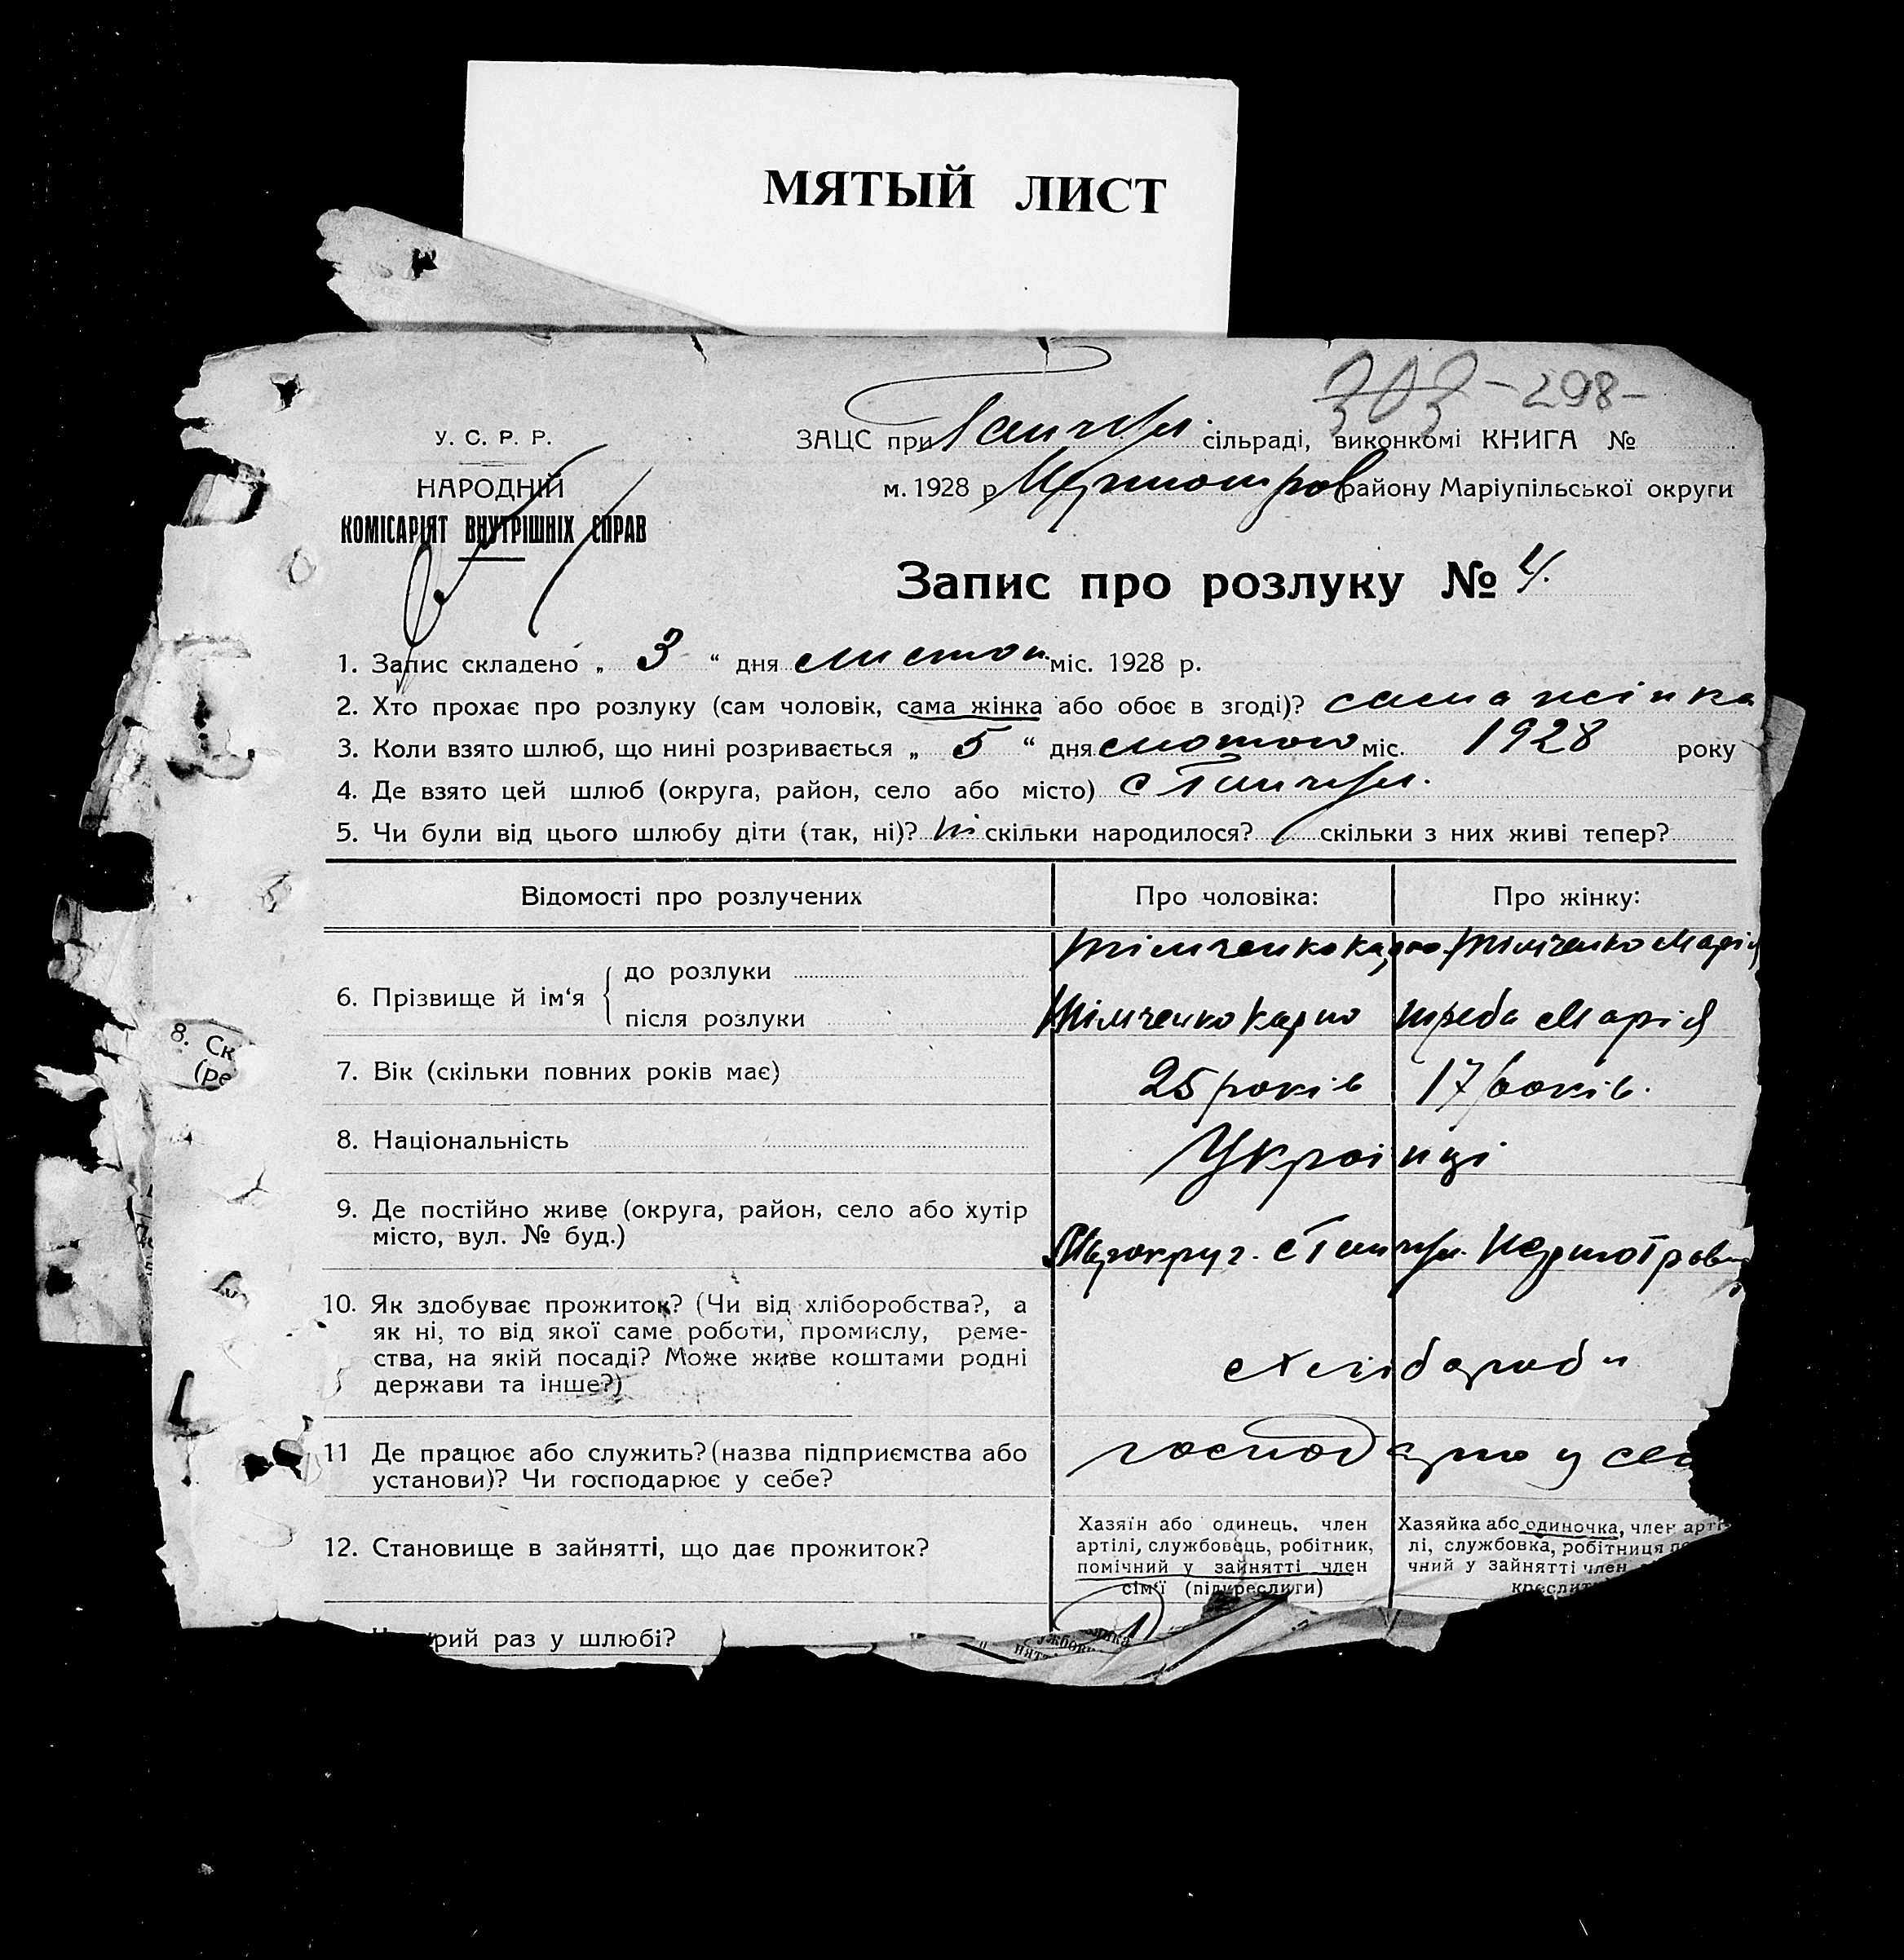 МЯТЫЙ ЛИСТ
303 - 298 -
У. С. Р. Р.
ЗАЦС при сільраді, виконкомі КНИГА №
НАРОДНІЙ
м. 1928 р. Першотров району Маріупільської округи
КОМІСАРІЯТ ВНУТРІШНІХ СПРАВ
Запис про розлуку № 4.
1. Запис складено „ 3 “ дня листоп. міс. 1928 р.
2. Хто прохає про розлуку (сам чоловік, сама жінка або обоє в згоді)? сама жінка
3. Коли взято шлюб, що нині розривається „ 5 “ дня лютого міс. 1928 року
4. Де взято цей шлюб (округа, район, село або місто)
5. Чи були від цього шлюбу діти (так, ні)? ні скільки народилося? скільки з них живі тепер?
Відомості про розлучених
Про чоловіка:
Про жінку:
6. Прізвище й ім‘я
до розлуки
Тімченко Карпо
Тімченко Марія
після розлуки
Тімченко Карпо
Треба Марія
8. Ск
(ре
7. Вік (скільки повних років має)
25 років
17 років.
8. Національність
Українці
9. Де постійно живе (округа, район, село або хутір
місто, вул. № буд.)
10. Як здобуває прожиток? (Чи від хліборобства?, а
як ні, то від якої саме роботи, промислу, реме-
ства, на якій посаді? Може живе коштами родні
держави та інше?)
хліборобы
11 Де працює або служить? (назва підприємства або
установи)? Чи господарює у себе?
господарю у себ
12. Становище в зайнятті, що дає прожиток?
Хазяїн або одинець, член
артілі, службовець, робітник,
помічний у зайнятті член
сім‘ї (підкреслити)
Хазяйка або одиночка, член арті-
лі, службовка, робітниця по
чний у зайнятті член
креслит
рий раз у шлюбі?